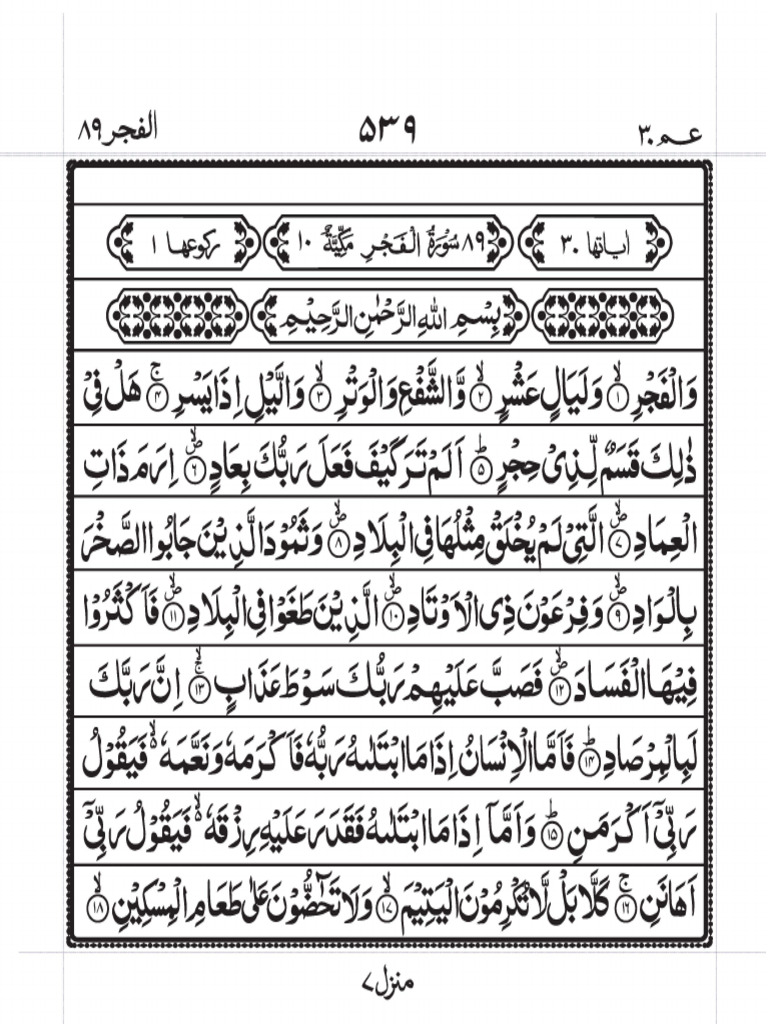 عـم ٣٠ ٥٣٩ الفجر ٨٩
اٰیاتها ٣٠ ٨٩ سُوْرَةُ الْفَجْرِ مَكِّيَّةٌ ١٠ رکوعها ١
بِسْمِ اللّٰهِ الرَّحْمٰنِ الرَّحِيْمِ
وَالْفَجْرِ ۙ﴿١﴾ وَلَيَالٍ عَشْرٍ ۙ﴿٢﴾ وَّالشَّفْعِ وَالْوَتْرِ ۙ﴿٣﴾ وَالَّيْلِ اِذَا يَسْرِ ۚ﴿٤﴾ هَلْ فِيْ
ذٰلِكَ قَسَمٌ لِّذِيْ حِجْرٍ ؕ﴿٥﴾ اَلَمْ تَرَ كَيْفَ فَعَلَ رَبُّكَ بِعَادٍ ۪ۙ﴿٦﴾ اِرَمَ ذَاتِ
الْعِمَادِ ۪ۙ﴿٧﴾ الَّتِيْ لَمْ يُخْلَقْ مِثْلُهَا فِي الْبِلَادِ ۪ۙ﴿٨﴾ وَثَمُوْدَ الَّذِيْنَ جَابُوا الصَّخْرَ
بِالْوَادِ ۪ۙ﴿٩﴾ وَفِرْعَوْنَ ذِي الْاَوْتَادِ ۪ۙ﴿١٠﴾ الَّذِيْنَ طَغَوْا فِي الْبِلَادِ ۪ۙ﴿١١﴾ فَاَكْثَرُوْا
فِيْهَا الْفَسَادَ ۪ۙ﴿١٢﴾ فَصَبَّ عَلَيْهِمْ رَبُّكَ سَوْطَ عَذَابٍ ۚۙ﴿١٣﴾ اِنَّ رَبَّكَ
لَبِالْمِرْصَادِ ؕ﴿١٤﴾ فَاَمَّا الْاِنْسَانُ اِذَا مَا ابْتَلٰىهُ رَبُّهٗ فَاَكْرَمَهٗ وَنَعَّمَهٗ ۙ۬ فَيَقُوْلُ
رَبِّيْٓ اَكْرَمَنِ ؕ﴿١٥﴾ وَاَمَّآ اِذَا مَا ابْتَلٰىهُ فَقَدَرَ عَلَيْهِ رِزْقَهٗ ۙ۬ فَيَقُوْلُ رَبِّيْٓ
اَهَانَنِ ۚ﴿١٦﴾ كَلَّا بَلْ لَّا تُكْرِمُوْنَ الْيَتِيْمَ ۙ﴿١٧﴾ وَلَا تَحٰٓضُّوْنَ عَلٰى طَعَامِ الْمِسْكِيْنِ ۙ﴿١٨﴾
منزل ٧